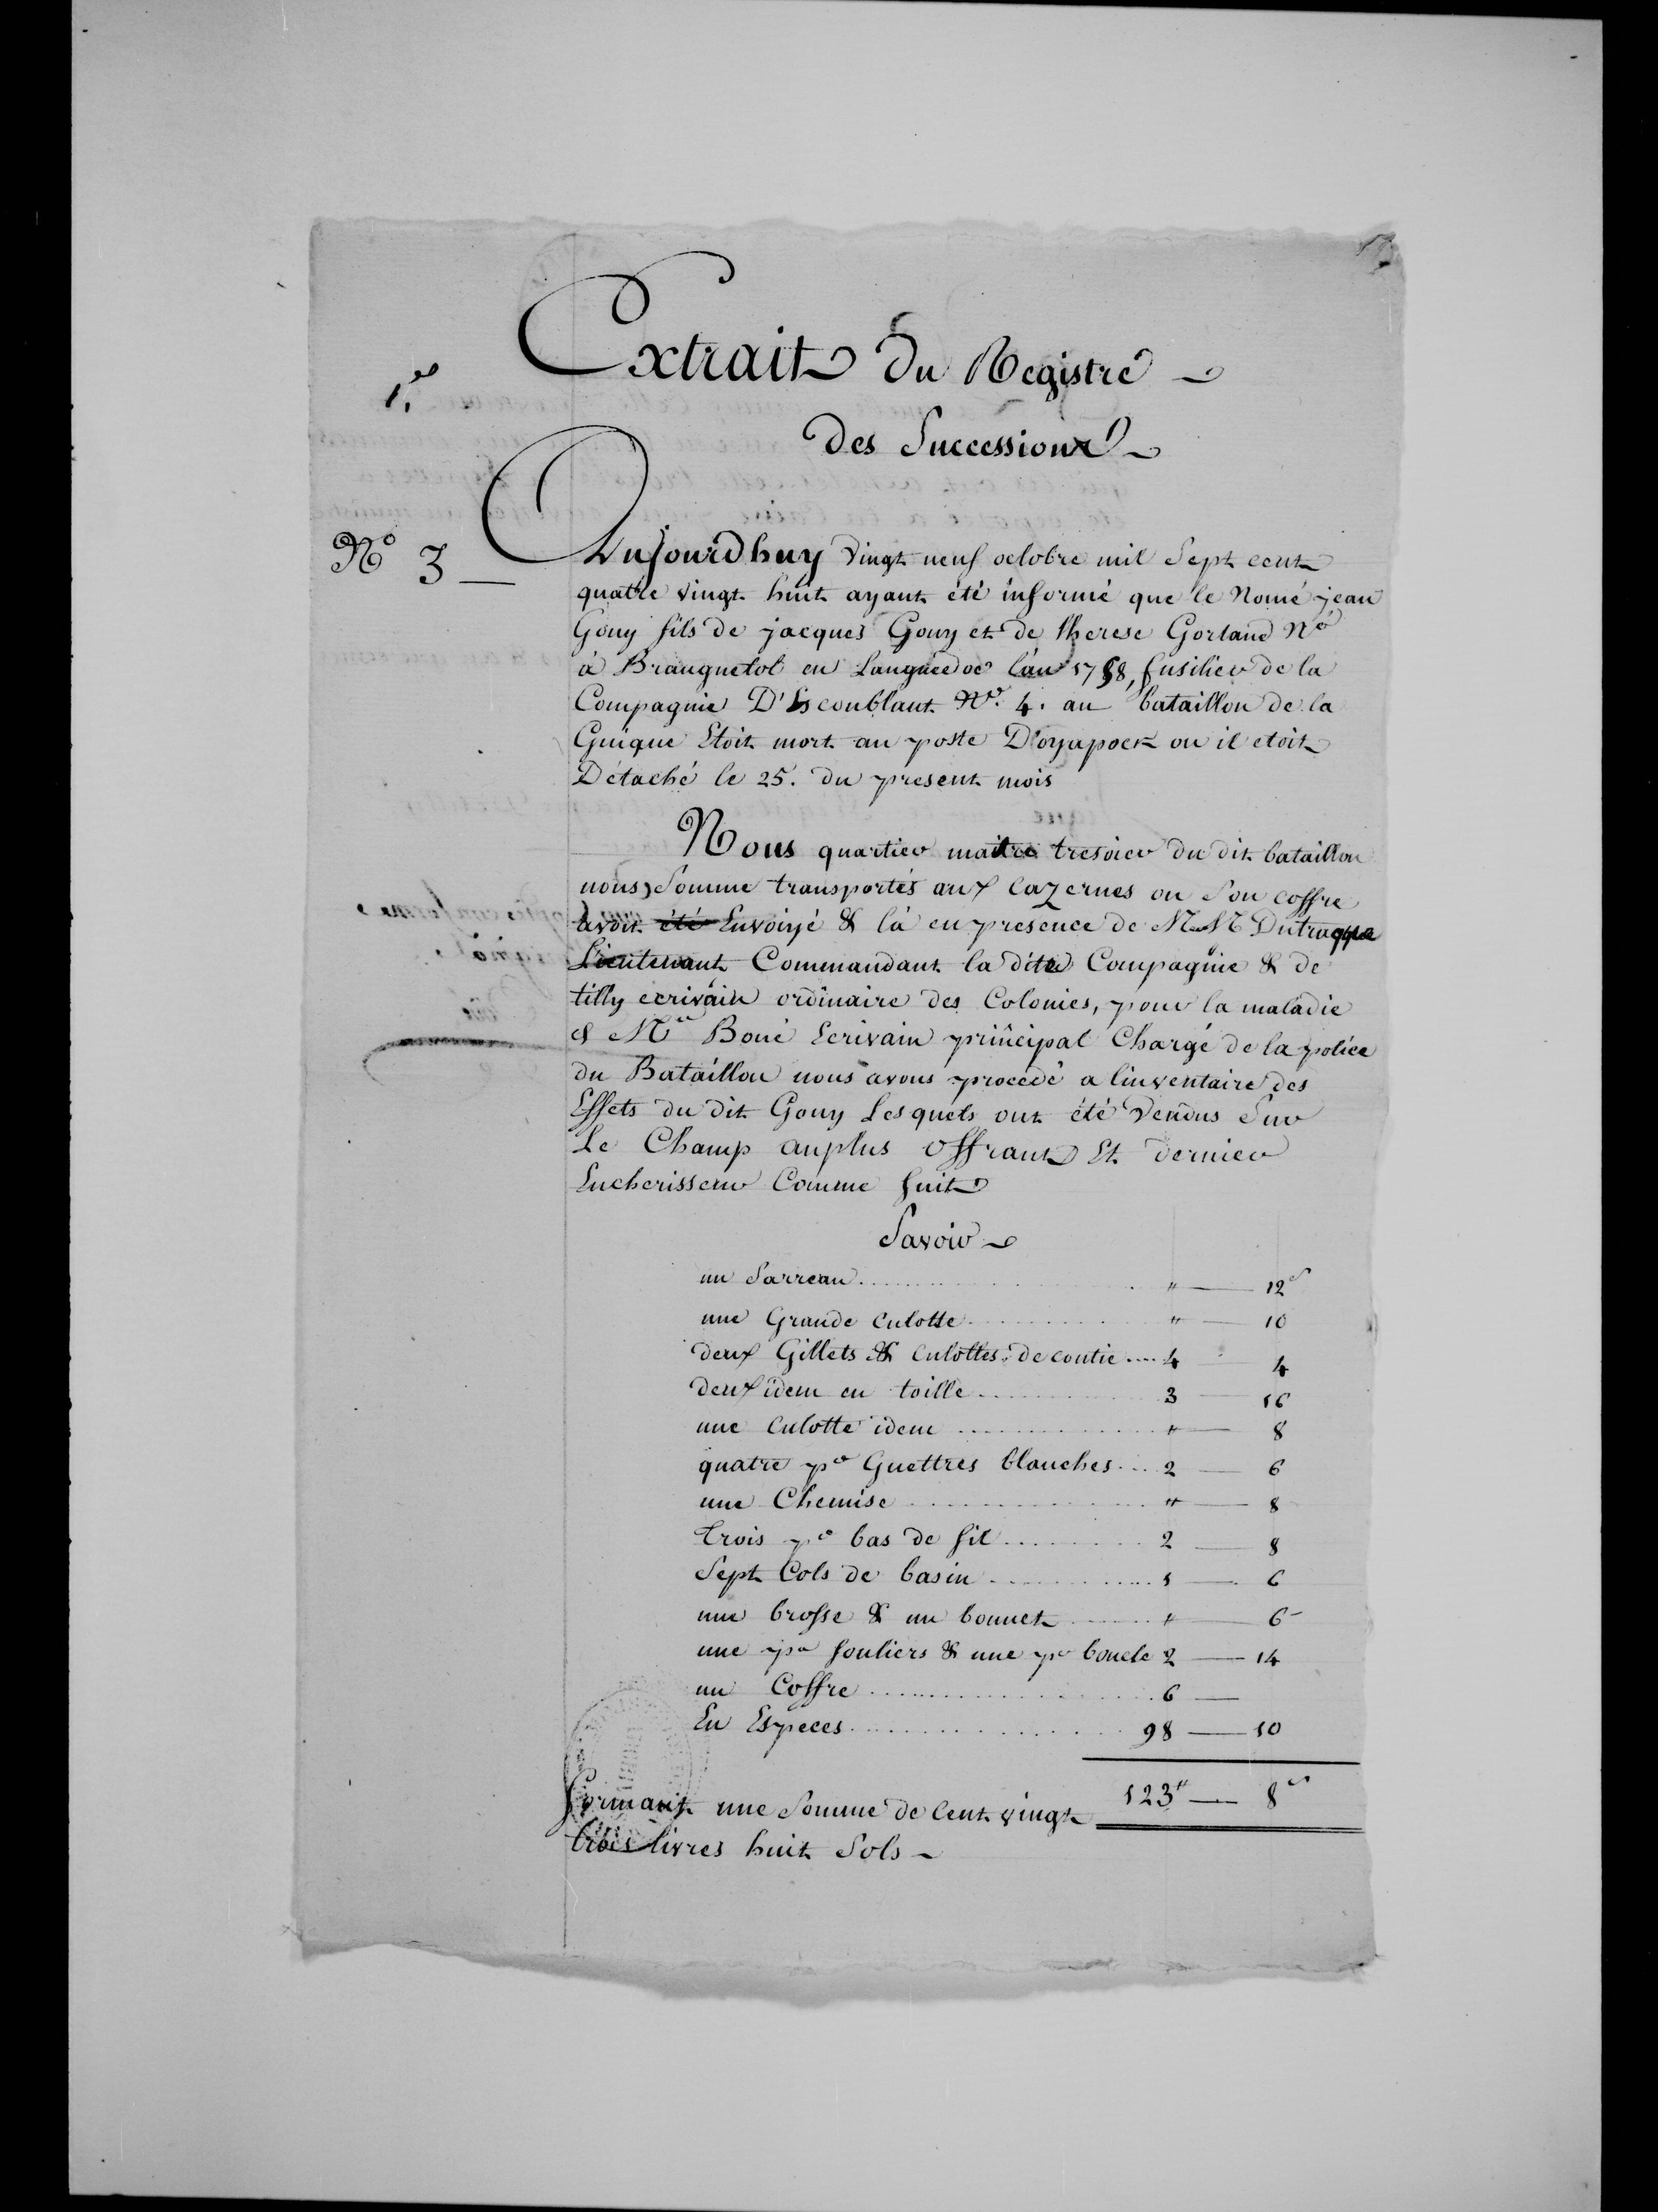 Extrait Du Registre
Des Successions
N° 3
Aujourdhuy vingt neuf octobre mil Sept cent
quatre vingt huit ayant été informé que le Nomé jean
Gouy fils de jacques Gouy et de therese Gorland Né
à Branguetot en Languedoc l'an 1758, fusilier de la
Compagnie D'Escoublant N°. 4. au bataillon de la
Guiane Etoit mort au poste D'oyapock ou il etoit
Détaché le 25. du present mois
Nous quartier maitre tresorier du dit bataillon
nous Somme transportés aux Cazernes ou Son coffre
avoit été Envoiyé & là en presence de M.M Dutraque
Lieutenant Commandant la dite Compagnie & de
tilly ecrivain ordinaire des Colonies, pour la maladie
& Mr Boué Ecrivain principal Chargé de la police
du Bataillon nous avons procedé a l'inventaire des
Effets du dit Gouy Lesquels ont été Vendus Sur
Le Champ auplus Offrant Et dernier
Encherisseur Comme Suit
Savoir
un Sarreau .......... " — 12s
une Grande Culotte .......... " — 10
deux Gillets & Culottes de coutie .... 4 — 4
deux idem en toille .......... 3 — 16
une Culotte idem .......... " — 8
quatre pr Guettres blanches .... 2 — 6
une Chemise .......... " — 8
trois pr bas de fil .......... 2 — 8
Sept Cols de basin .......... 1 — 6
une brosse & un bonnet .......... " — 6
une pr Souliers & une pr boucle 2 — 14
un Coffre .......... 6 —
En Especes .......... 98 — 10
123" — 8s
formant une Somme de Cent vingt
trois livres huit Sols